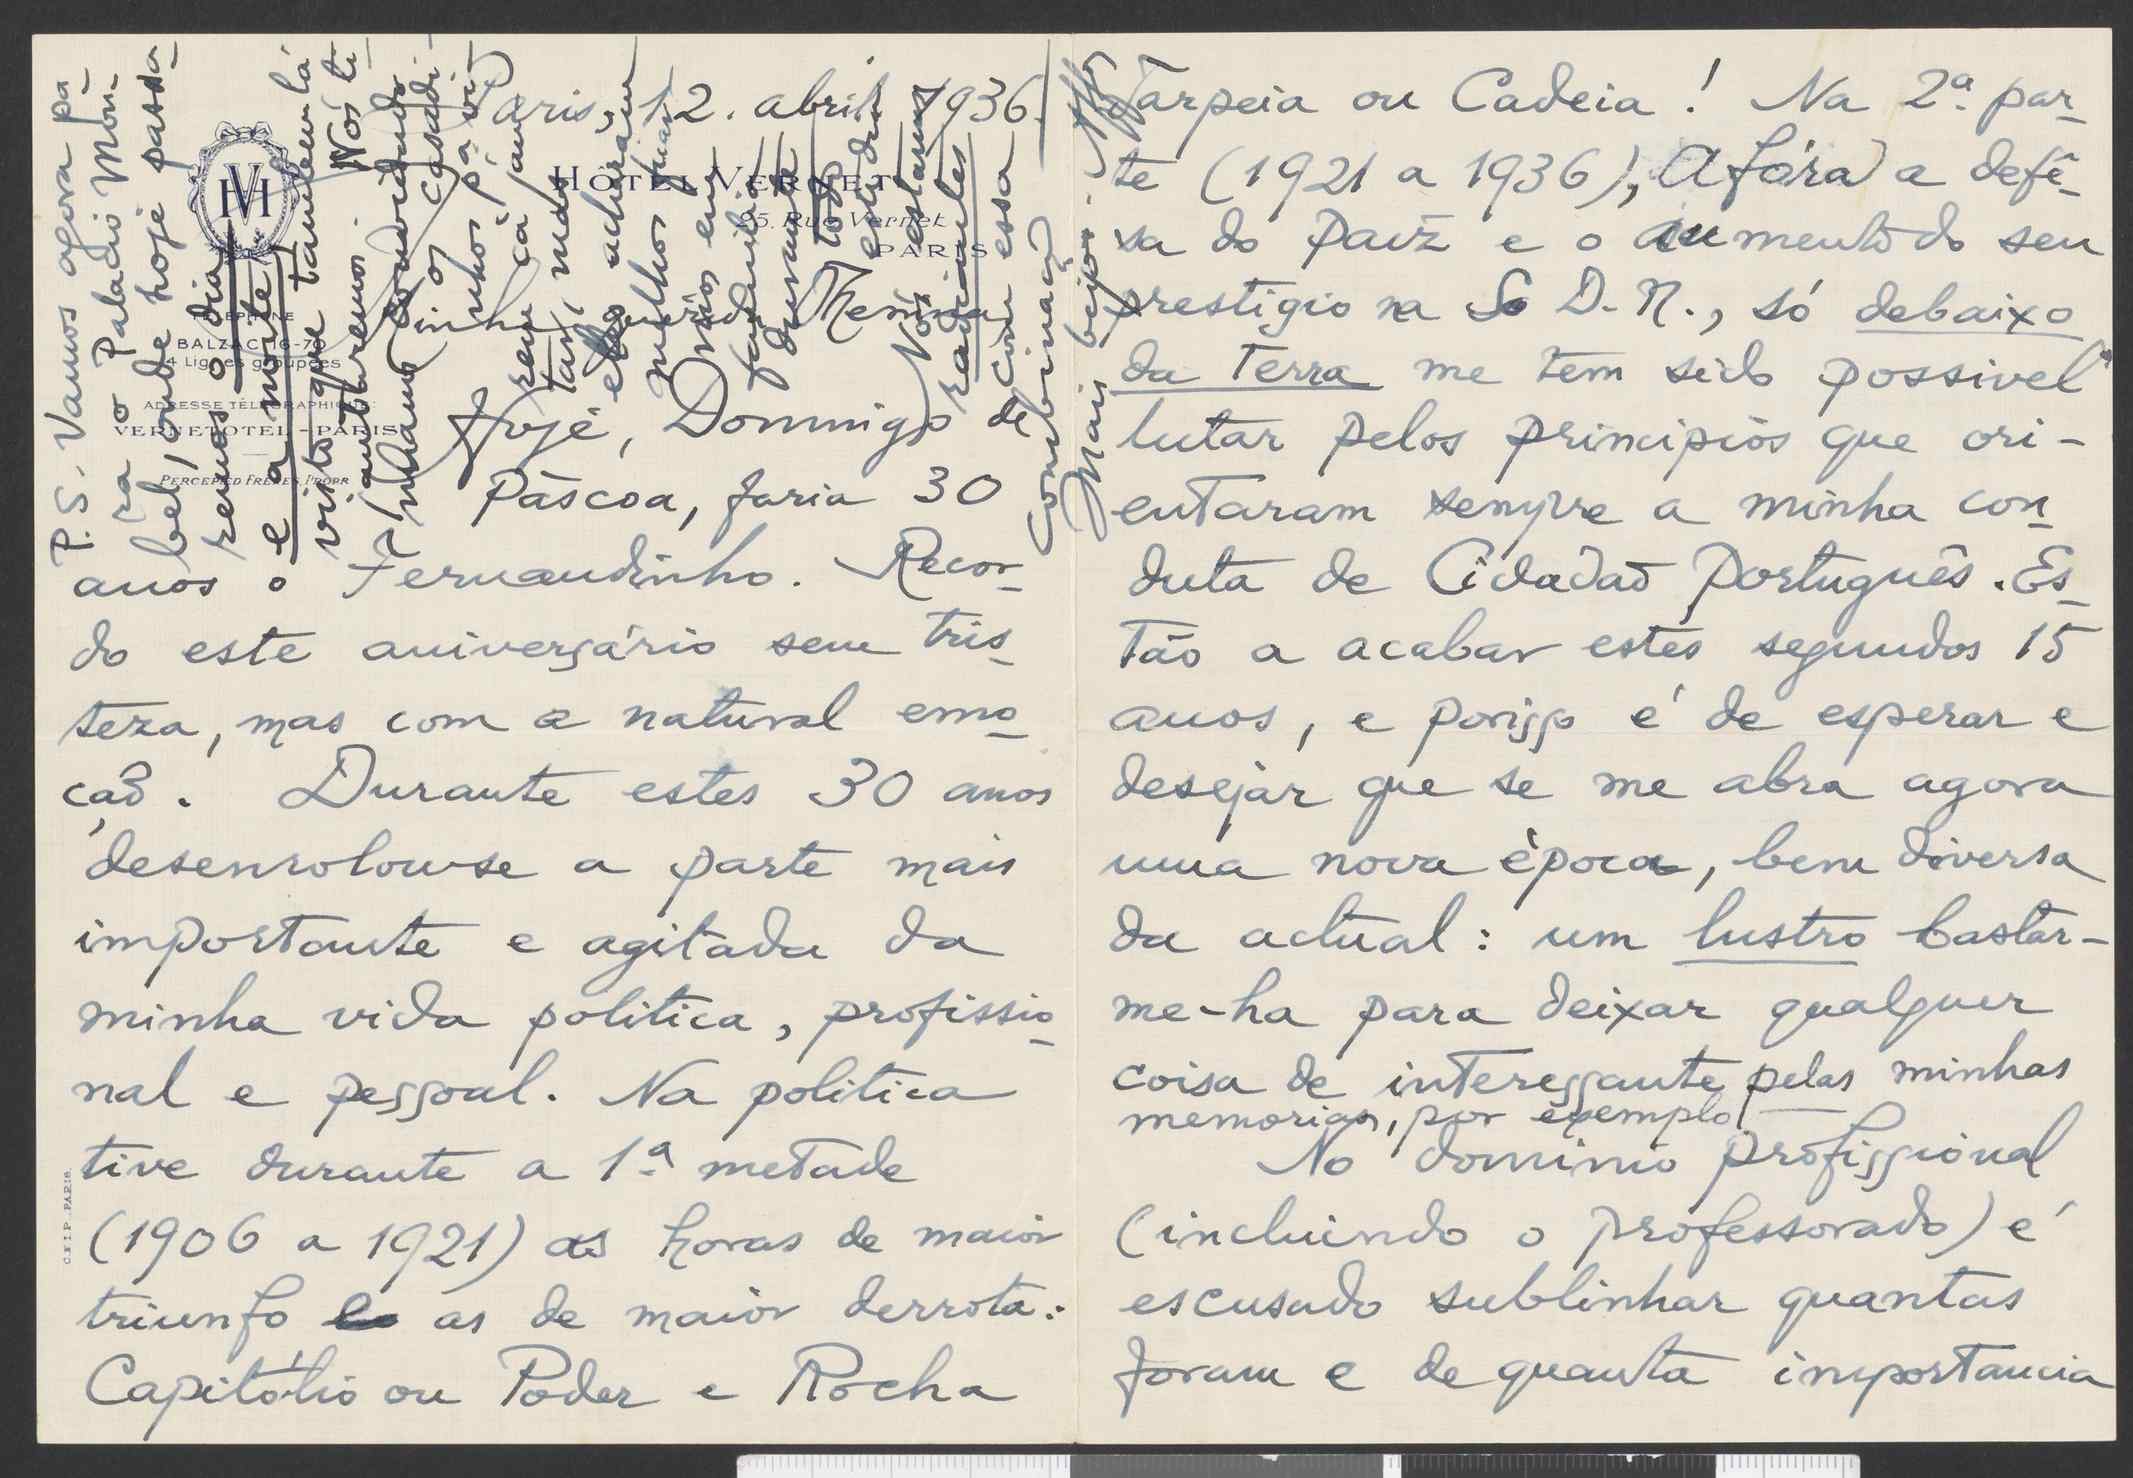 Paris, 12. abril 1936.
HÔTEL VERNET
25. Rue Vernet
PARIS
VH
TÉLÉPHONE
BALZAC 16-70
4 Lignes groupées
ADRESSE TÉLÉGRAPHIQUE:
VERNETOTEL-PARIS
PERCEPIED FRÈRES, PROPR
C.F.I.P. PARIS
Minha querida Menina
Hoje, Domingo de
Páscoa, faria 30
anos o Fernandinho. Recor-
do este aniversário sem tris-
teza, mas com a natural emo-
ção. Durante estes 30 anos
desenrolou-se a parte mais
importante e agitada da
minha vida politica, profissio-
nal e pessoal. Na politica
tive durante a 1.ª metade
(1906 a 1921) as horas de maior
triunfo e as de maior derrota:
Capitólio ou Poder e Rocha
Tarpeia ou Cadeia! Na 2.ª par-
te (1921 a 1936), Afóra a defê-
sa do paiz e o aumento do seu
prestigio na S. D. N., só debaixo
da terra me tem sido possivel
lutar pelos principios que ori-
entaram sempre a minha con-
duta de Cidadão Português. Es-
tão a acabar estes segundos 15
anos, e porisso é de esperar e
desejar que se me abra agora
uma nova época, bem diversa
da actual: um lustro bastar-
me-ha para deixar qualquer
coisa de interessante pelas minhas
memorias, por exemplo.
No dominio profissional
(incluindo o professorado) é
escusado sublinhar quantas
foram e de quanta importancia
P.S. Vamos agora pa-
ra o Palacio Mon-
bel, onde hoje passa-
remos o dia
e a noite,
visto que tambem lá
jantaremos. Nós ti-
nhamos convidado
os casadi-
nhos pa vi-
rem cá jan-
tar, mas
eles acharam
melhor jantar-
mos em
familia
durante
todo
e tudo.
Nós estamos
radiantes
com essa
combinação
Mais beijos. Aff.º